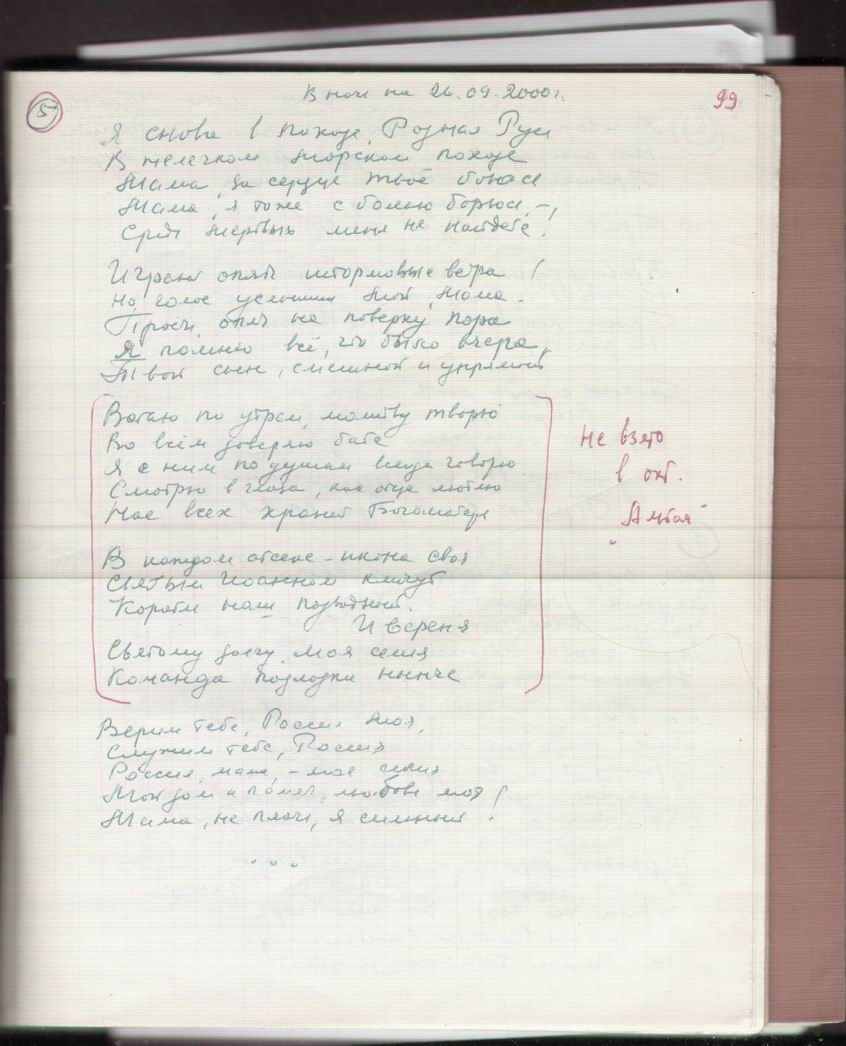 5
В ночь на 26.09.2000г.
99
Я снова в походе, Родная Русь
В нелегком морском походе
Мама, за сердце твоё боюсь
Мама, я тоже с болью борюсь, –
Средь мертвых меня не найдёте!
Играют опять штормовые ветра!
Но голос услышим мой, Мама.
Прости, опять на поверку пора
Я помню всё, что было вчера,
Твой сын, смешной и упрямый
Встаю по утрам, молитву творю
Во всём доверяю бате
Я с ним по душам всегда говорю
Смотрю в глаза, как отца люблю
Нас всех хранит Богоматерь
В каждом отсеке – икона своя
Святым Иоанном кличут
Корабль наш подводный.
И верная
Святому долгу моя семья
Команда подлодки нынче
Верим тебе, Россия моя,
Служим тебе, Россия
Россия, мама, – моя семья
Мой дом и полёт, любовь моя!
Мама, не плачь, я сильный!
...
Не взято
в окт.
"Альбом"